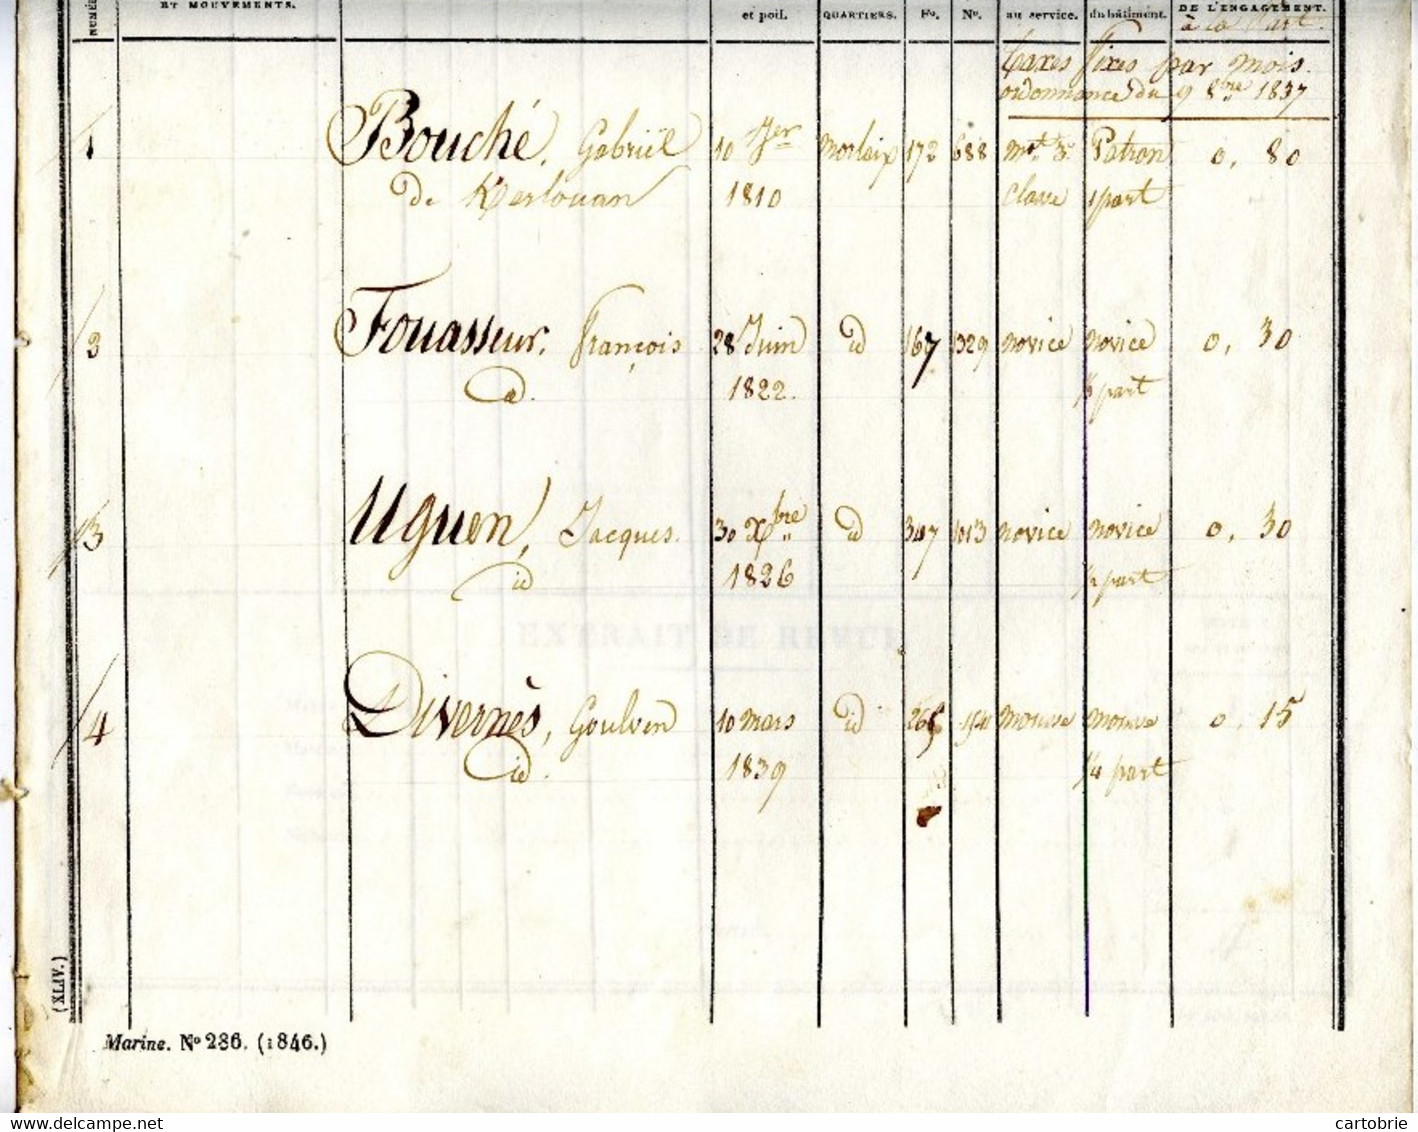 NUMÉ
ET MOUVEMENTS.
et poil.
QUARTIERS.
Fo.
No.
au service.
du bâtiment.
DE L'ENGAGEMENT.
à la Part.
taxes fixes par mois.
ordonnance du 9 8bre 1837
1 Bouché, Gabriël 10 Jer morlaix 172 688 mot 3e Patron 0, 80
De Kerlouan 1810 classe 1 part
2 Fouasseur, François 28 Juin id 167 1329 novice novice 0, 30
id. 1822. part
3 Uguen, Jacques. 30 Xbre id 347 1013 novice novice 0, 30
id 1826 1/2 part
4 Divernès, Goulven 10 mars id mousse mousse 0, 15
id. 1839 1/4 part
EXTRAIT DE REVUE
(XLIV.)
Marine. No 286. (1846.)
cartobrie